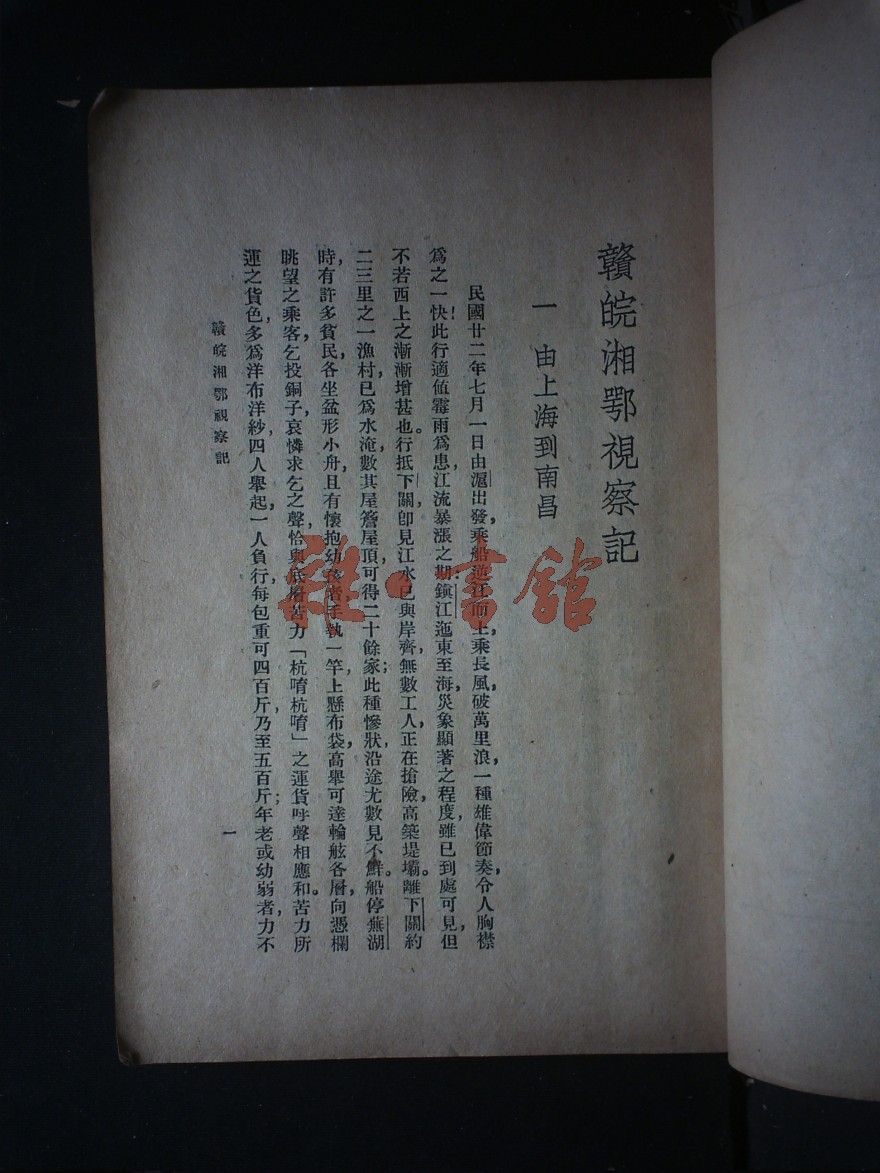 贛皖湘鄂視察記
一 由上海到南昌
民國廿二年七月一日由滬出發，乘船逆江而上乘長風，破萬里浪，一種雄偉節奏，令人胸襟
爲之一快！此行適値霉雨爲患，江流暴漲之期；鎭江迤東至海，災象顯著之程度，雖已到處可見，但
不若西上之漸漸增甚也。行抵下關，卽見江水已與岸齊，無數工人，正在搶險高築堤壩。離下關約
二三里之一漁村，已爲水淹，數其屋簷屋頂，可得二十餘家；此種慘狀，沿途尤數見不鮮。船停蕪湖
時，有許多貧民，各坐盆形小舟，且有懷抱幼孩者，手執一竿，上懸布袋，高舉可達輪舷各層，向憑欄
眺望之乘客，乞投銅子，哀憐求乞之聲，恰與底層苦力「杭唷杭唷」之運貨呼聲相應和。苦力所
運之貨色，多爲洋布洋紗，四人舉起，一人負行，每包重可四百斤，乃至五百斤；年老或幼弱者，力不
贛皖湘鄂視察記
一
雜·書館